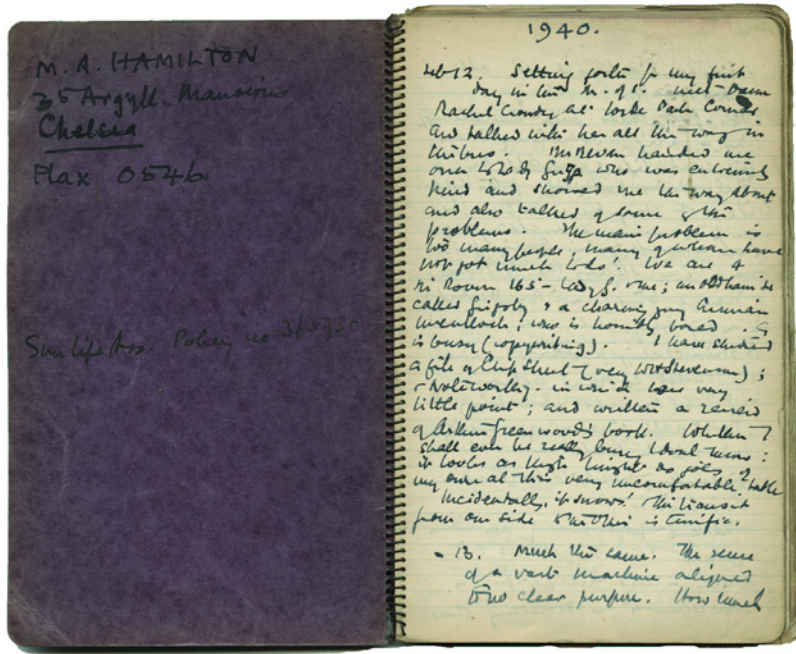 M. A. HAMILTON
35 Argyll Mansions
Chelsea
Flax 0546
Sun Life Ass. Policy no
1940.
Feb 12. Setting forth for my first
day in the M. of I. met Dame
Rachel Crowdy at Hyde Park Corner
and talked with her all the way in
the bus. Bevan handed me
over to Lady Grigg who was extremely
kind and showed me the way about
and also talked of some of the
problems. The main problem is
too many people, many of whom have
not got much to do! We are 4
in Room 165 - Lady G. + me; an old
called Grigsby + a charming young
who is horribly bored. G
is busy (copywriting). I have studied
a file of (very ;
+ Noteworthy. in which very
little point; and written a review
of Arthur Greenwood's book. Whether I
shall ever be really busy I don't know:
it looks as
my own at this very uncomfortable table
Incidentally, it snows! The transit
from one side to the other is terrific.
- 13. Much the same. The sense
of a vast machine aligned
to no clear purpose. How much